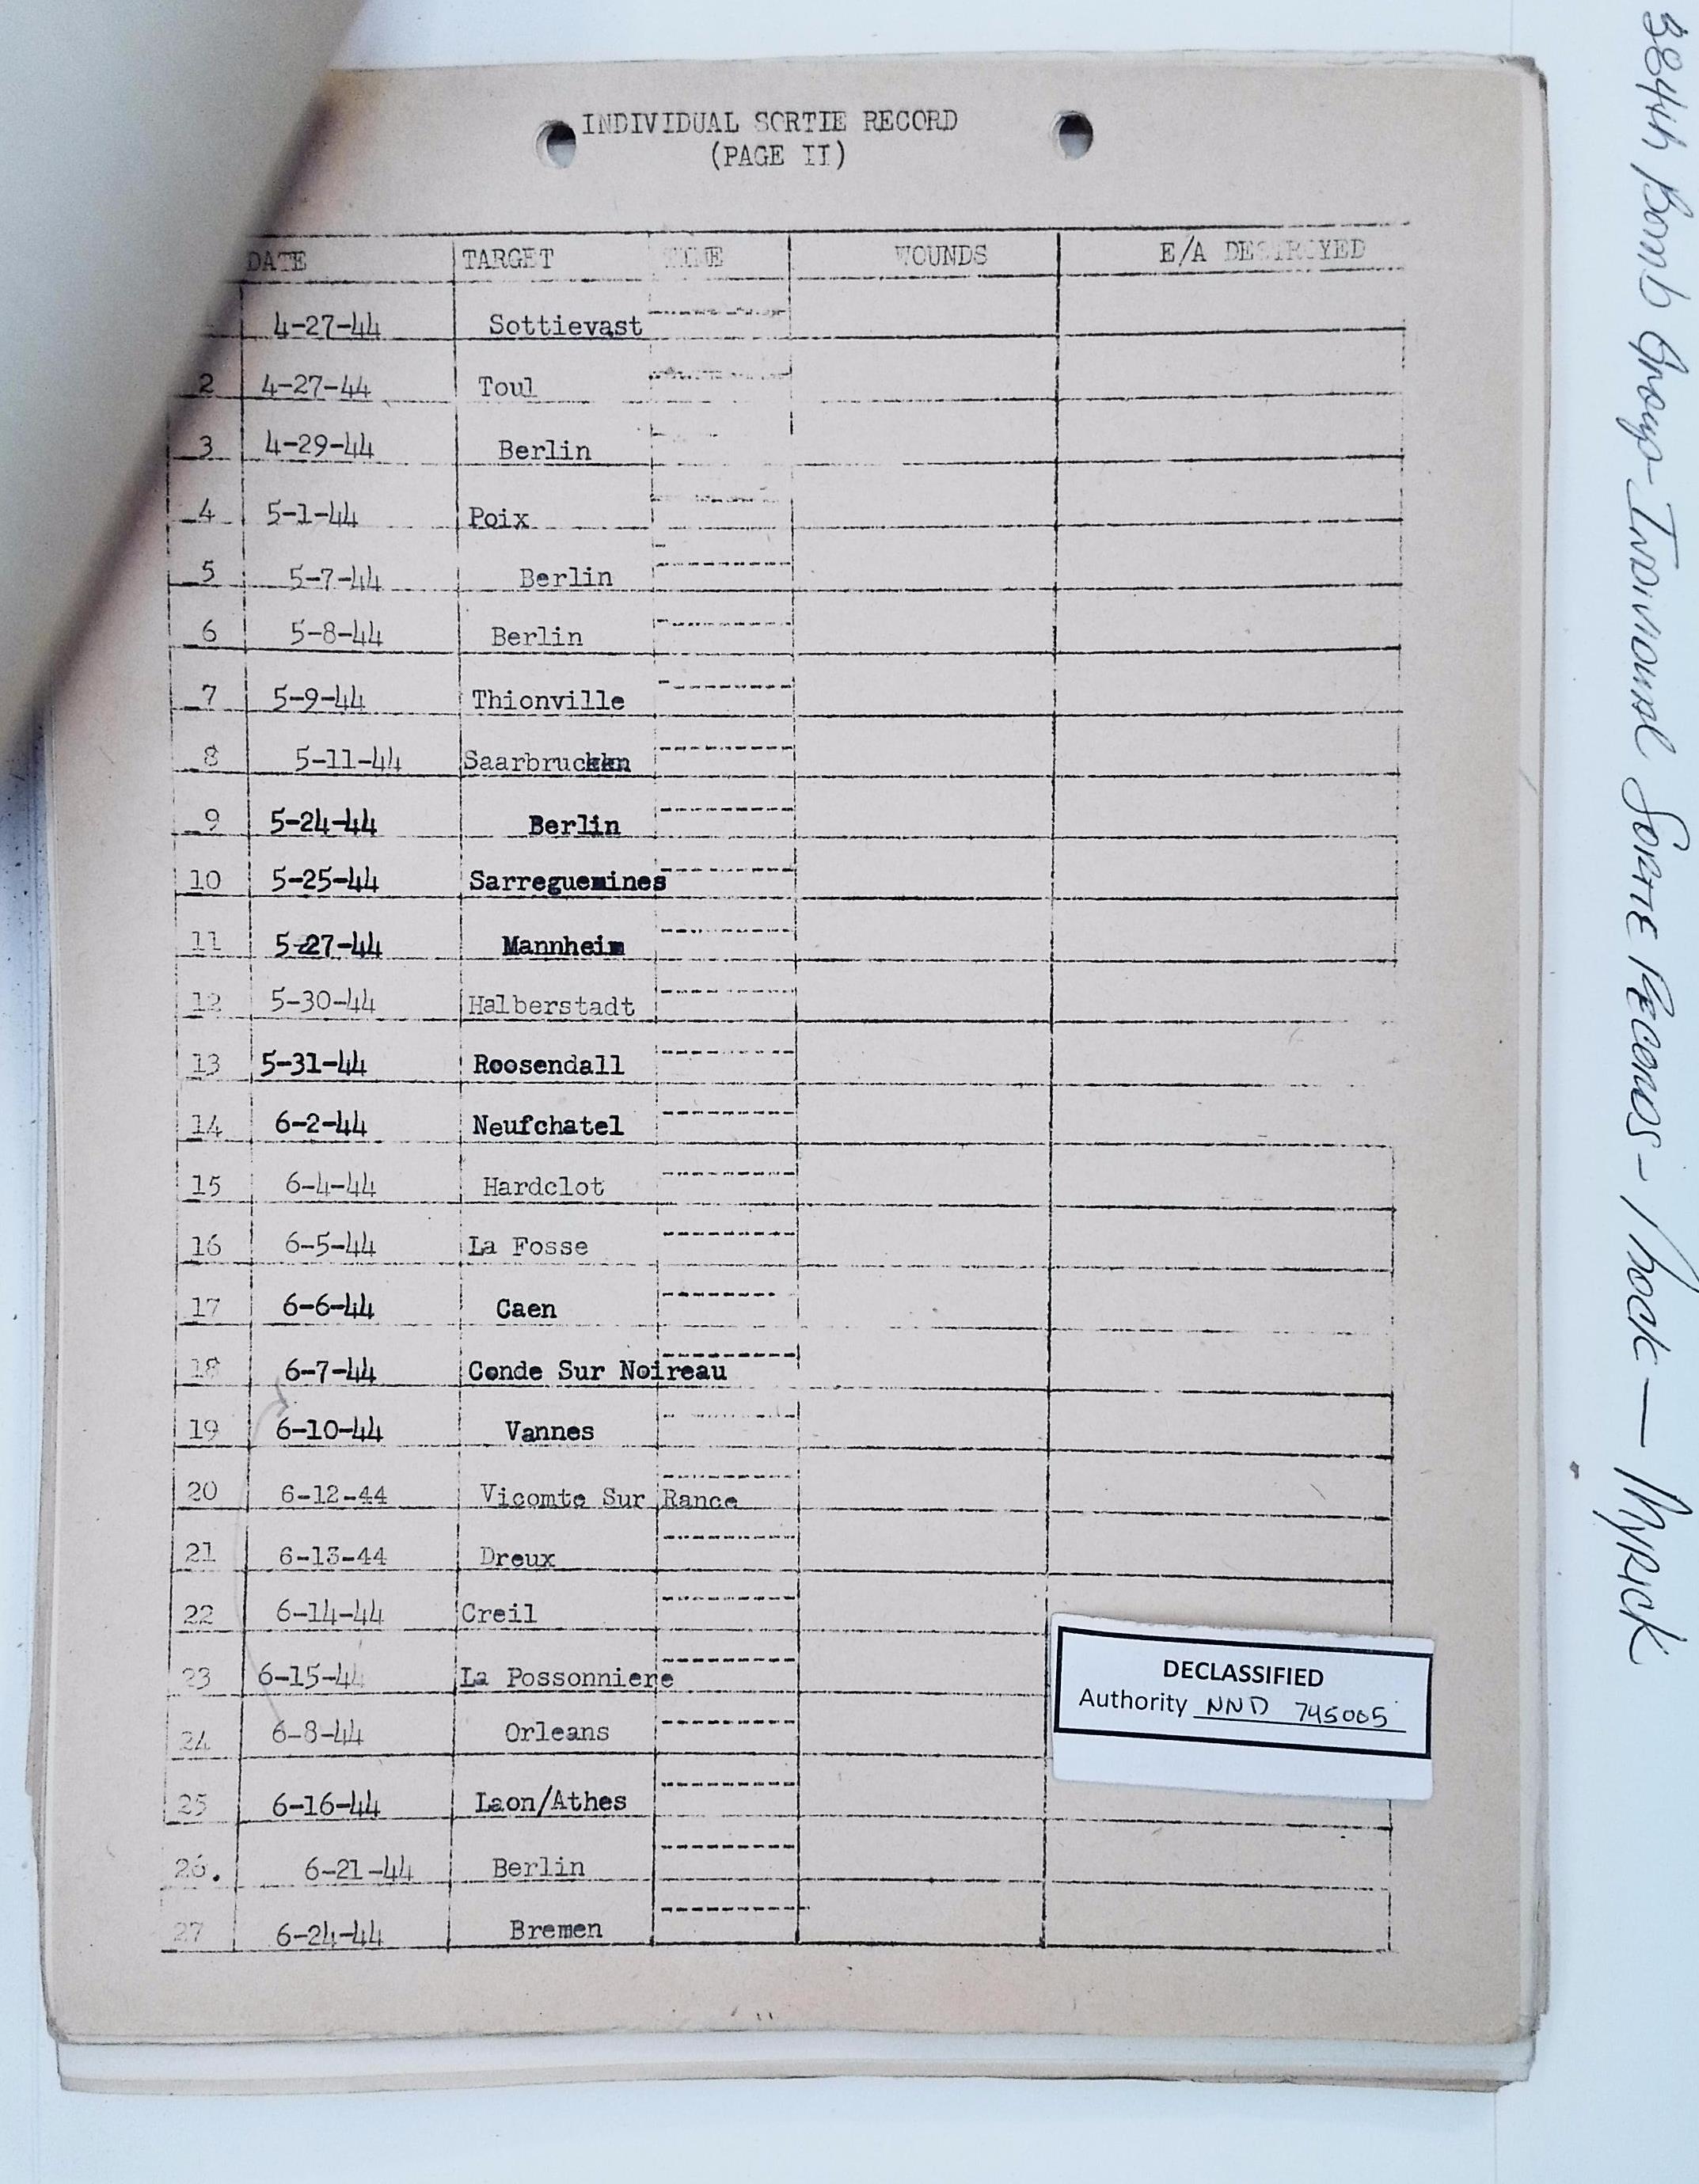 INDIVIDUAL SORTIE RECORD
(PAGE II)
DATE TARGET TIME WOUNDS E/A DESTROYED
4-27-44 Sottievast
2 4-27-44 Toul
3 4-29-44 Berlin
4 5-1-44 Poix
5 5-7-44 Berlin
6 5-8-44 Berlin
7 5-9-44 Thionville
8 5-11-44 Saarbrucken
9 5-24-44 Berlin
10 5-25-44 Sarreguemines
11 5-27-44 Mannheim
12 5-30-44 Halberstadt
13 5-31-44 Roosendall
14 6-2-44 Neufchatel
15 6-4-44 Hardclot
16 6-5-44 La Fosse
17 6-6-44 Caen
18 6-7-44 Conde Sur Noireau
19 6-10-44 Vannes
20 6-12-44 Vicomte Sur Rance
21 6-13-44 Dreux
22 6-14-44 Creil
23 6-15-44 La Possonniere
24 6-8-44 Orleans
25 6-16-44 Laon/Athes
26. 6-21-44 Berlin
27 6-24-44 Bremen
DECLASSIFIED
Authority NND 745005
384th Bomb Group - Individual Sortie Records - Mock — Myrick